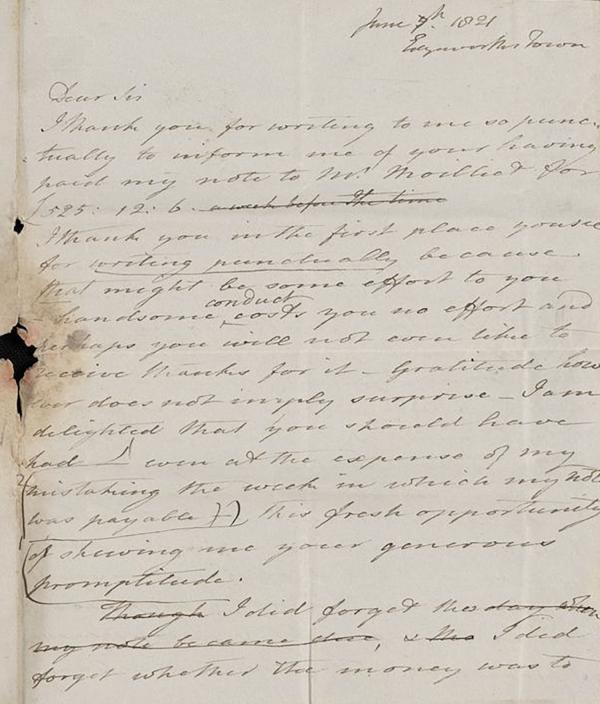 June 7th 1821
Edgeworths Town
Dear Sir
I thank you for writing to me so punc-
tually to inform me of your having
paid my note to Mr. Moilliet for
£525: 12: 6. a week before the time
I thank you in the first place you see
for writing punctually because
that might be some effort to you
- handsome conduct costs you no effort and
perhaps you will not even like to
receive thanks for it - Gratitude how
ever does not imply surprise - I am
delighted that you should have
had even at the expense of my
mistaking the week in which my note
was payable this fresh opportunity
of shewing me your generous
promptitude.
Though I did forget the day when
my note became due, & tho I did
forget whether the money was to